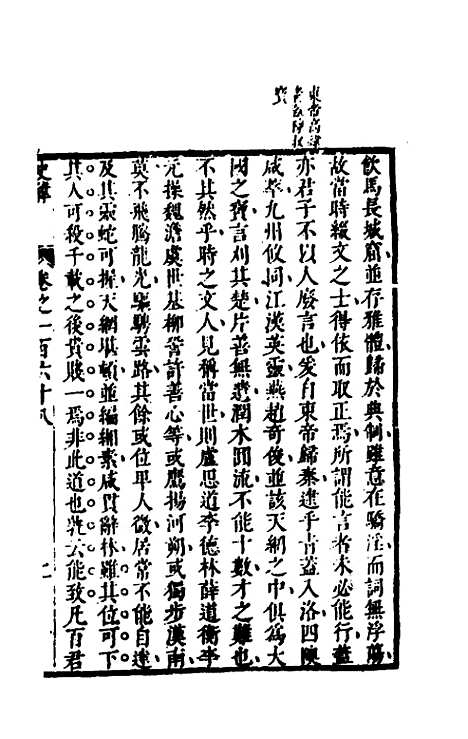 東帝高建
者言
飲馬長城窟並存雅體歸於典制雖意在驕淫而詞無浮蕩
故當時綴文之士得依而取正焉所謂能言者未必能行蓋
亦君子不以人廢言也爰自東帝歸秦逮乎青蓋入洛四隩
咸暨九州攸同江漢英靈燕趙奇俊並該天網之中俱為大
國之寶言刈其楚片善無遺潤木圓流不能十數才之難也
不其然乎時之文人見稱當世則盧思道李德林薛道衡李
元操魏澹虞世基柳䛒許善心等或鷹揚河朔或獨步漢南
莫不飛騰龍光驅騁雲路其餘或位卑人微居常不能自達
及其靈蛇可握天網堪頓並編緗素咸貫辭林雖其位可下
其人可殺千載之後貴賤一焉非此道也孰云能致凡百君
史緯 卷之一百六十八